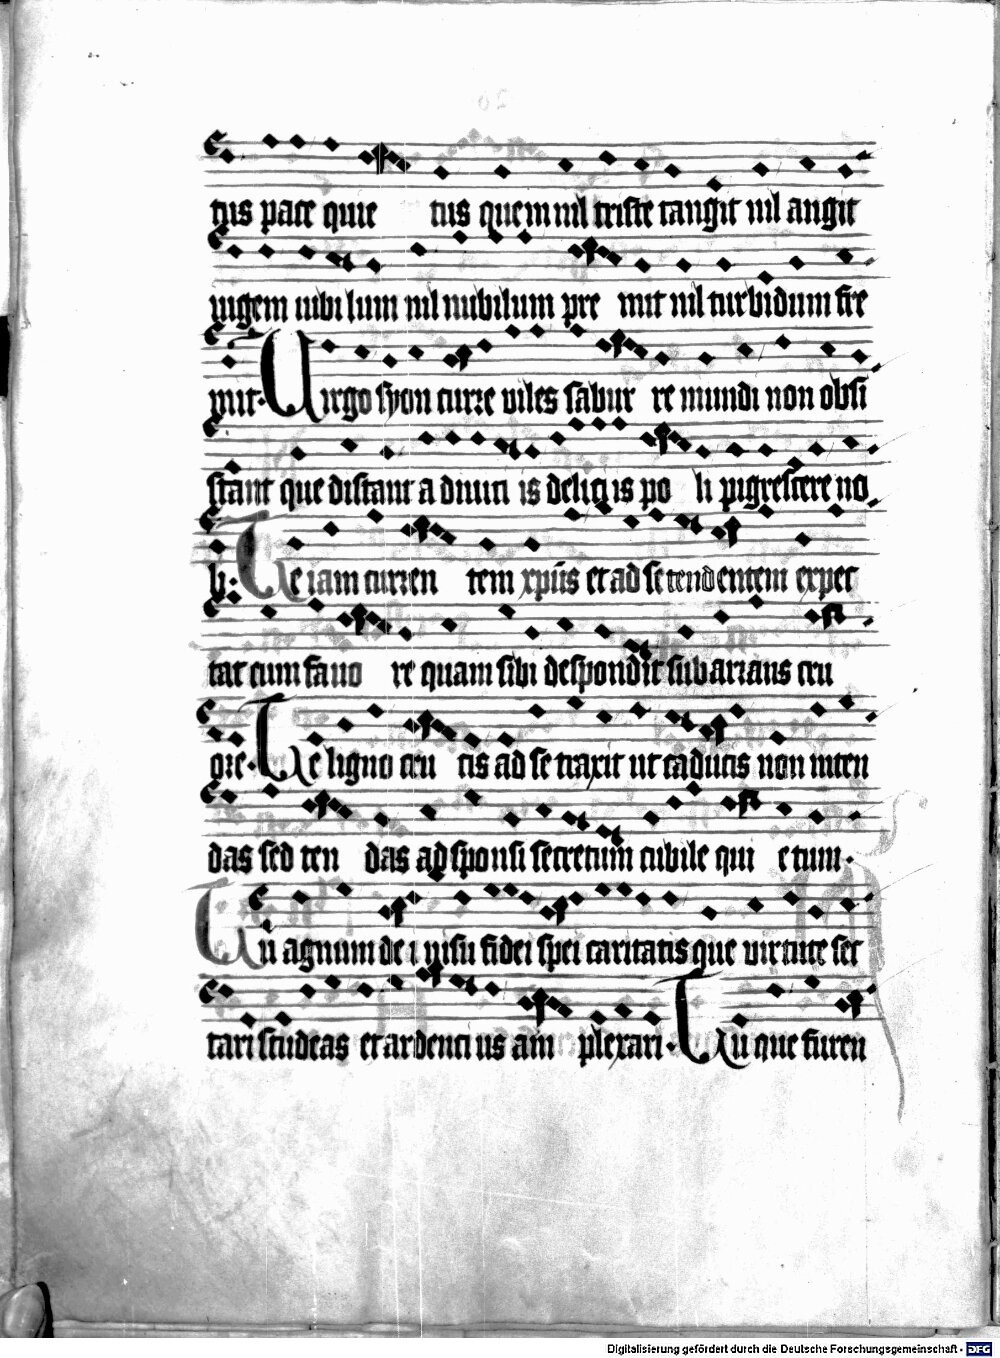 tus pace quie tus quem nil triste tangit nil angit
iugem iubilum nil nubilum pre mit nil turbidum fre
mit. Virgo syon curre viles sabur re mundi non obsi
stant que distant a diuici is deliciis po li pigrescere no
li: Te iam curren tem xpūs et ad se tendentem expec
tat cum fauo re quam sibi despondit subarrans cru
ore. Te ligno cru cis ad se traxit ut caducis non inten
das sed ten das ad sponsi secretum cubile qui etum.
Tu agnum de i uisu fidei spei caritatis que virtute sec
tari studeas et ardenci us am plexari. Tu que furen
Digitalisierung gefördert durch die Deutsche Forschungsgemeinschaft - DFG